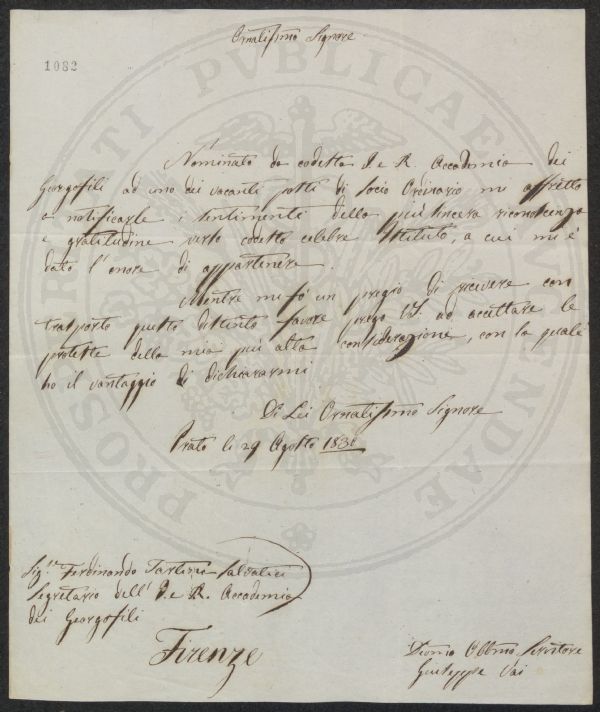 Ornatissimo Signore
1082
PROSPERITATI PVBLICAE AVGENDAE
Nominato da codesta I. e R. Accademia dei
Georgofili ad uno dei vacanti posti di Socio Ordinario mi affretto
a notificarle i sentimenti della più sincera riconoscenza
e gratitudine verso codesto celebre Istituto, a cui mi è
dato l'onore di appartenere.
Mentre mi fò un pregio di ricevere con
trasporto questo distinto favore prego VS. ad accettare le
proteste della mia più alta considerazione, con la quale
ho il vantaggio di dichiararmi
Di Lei Ornatissimo Signore
Prato li 29 Agosto
Sig.re Ferdinando Tartini Salvatici
Segretario dell'I. e R. Accademia
dei Georgofili
Firenze
Obbmo Servitore
Giuseppe Vai